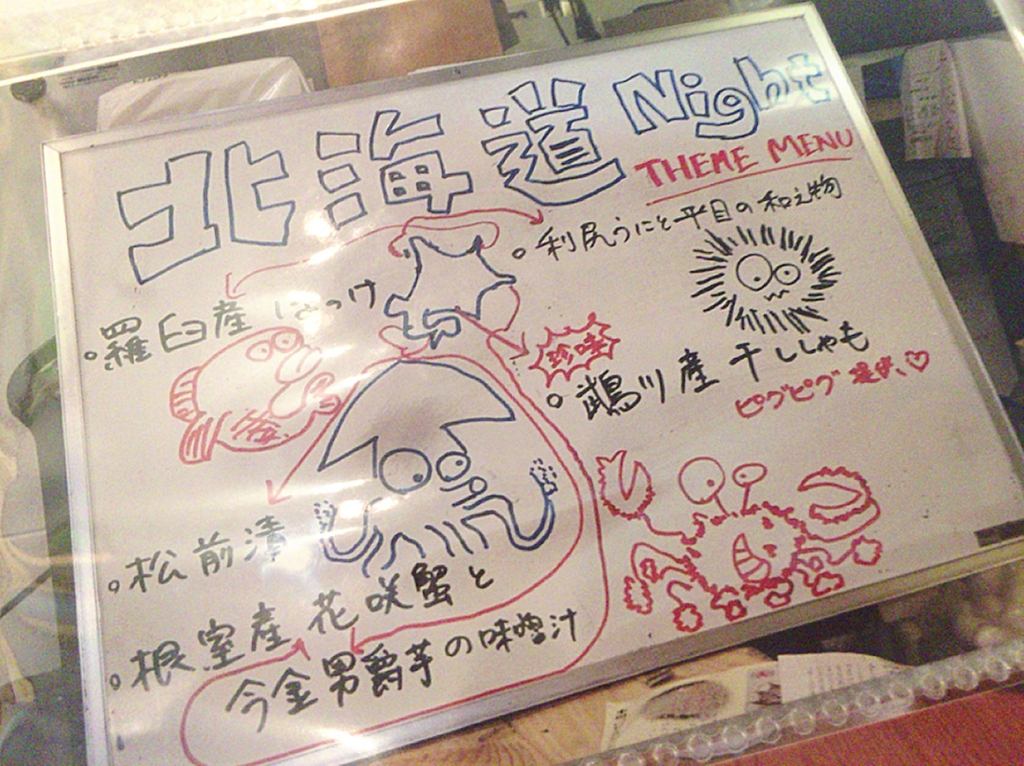 北海道 Night
THEME MENU
。利尻うにと平目の和え物
。羅臼産 ほっけ
珍味
。鵡川産 干ししゃも
ピグピグ 提供、♡
。松前漬
。根室産 花咲蟹と
今金男爵芋の味噌汁